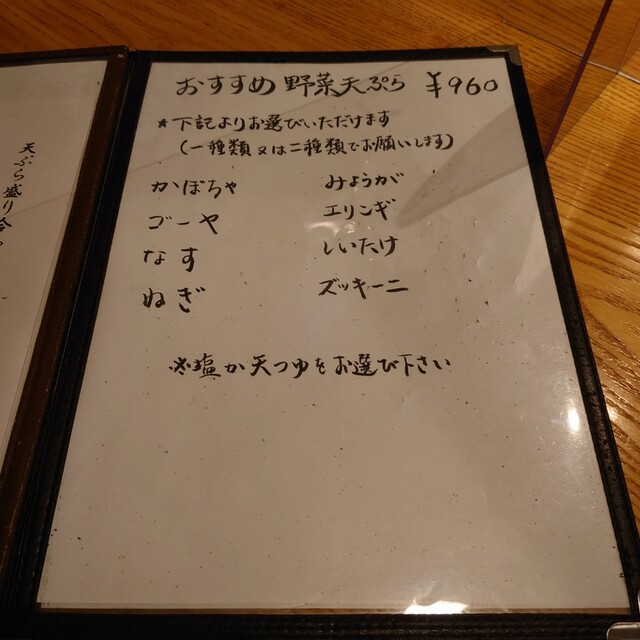 おすすめ 野菜天ぷら ¥960
★下記よりお選びいただけます
(一種類又は二種類でお願いします)
かぼちゃ
ゴーヤ
なす
ねぎ
みょうが
エリンギ
しいたけ
ズッキーニ
※塩か天つゆをお選び下さい
天ぷら盛り合